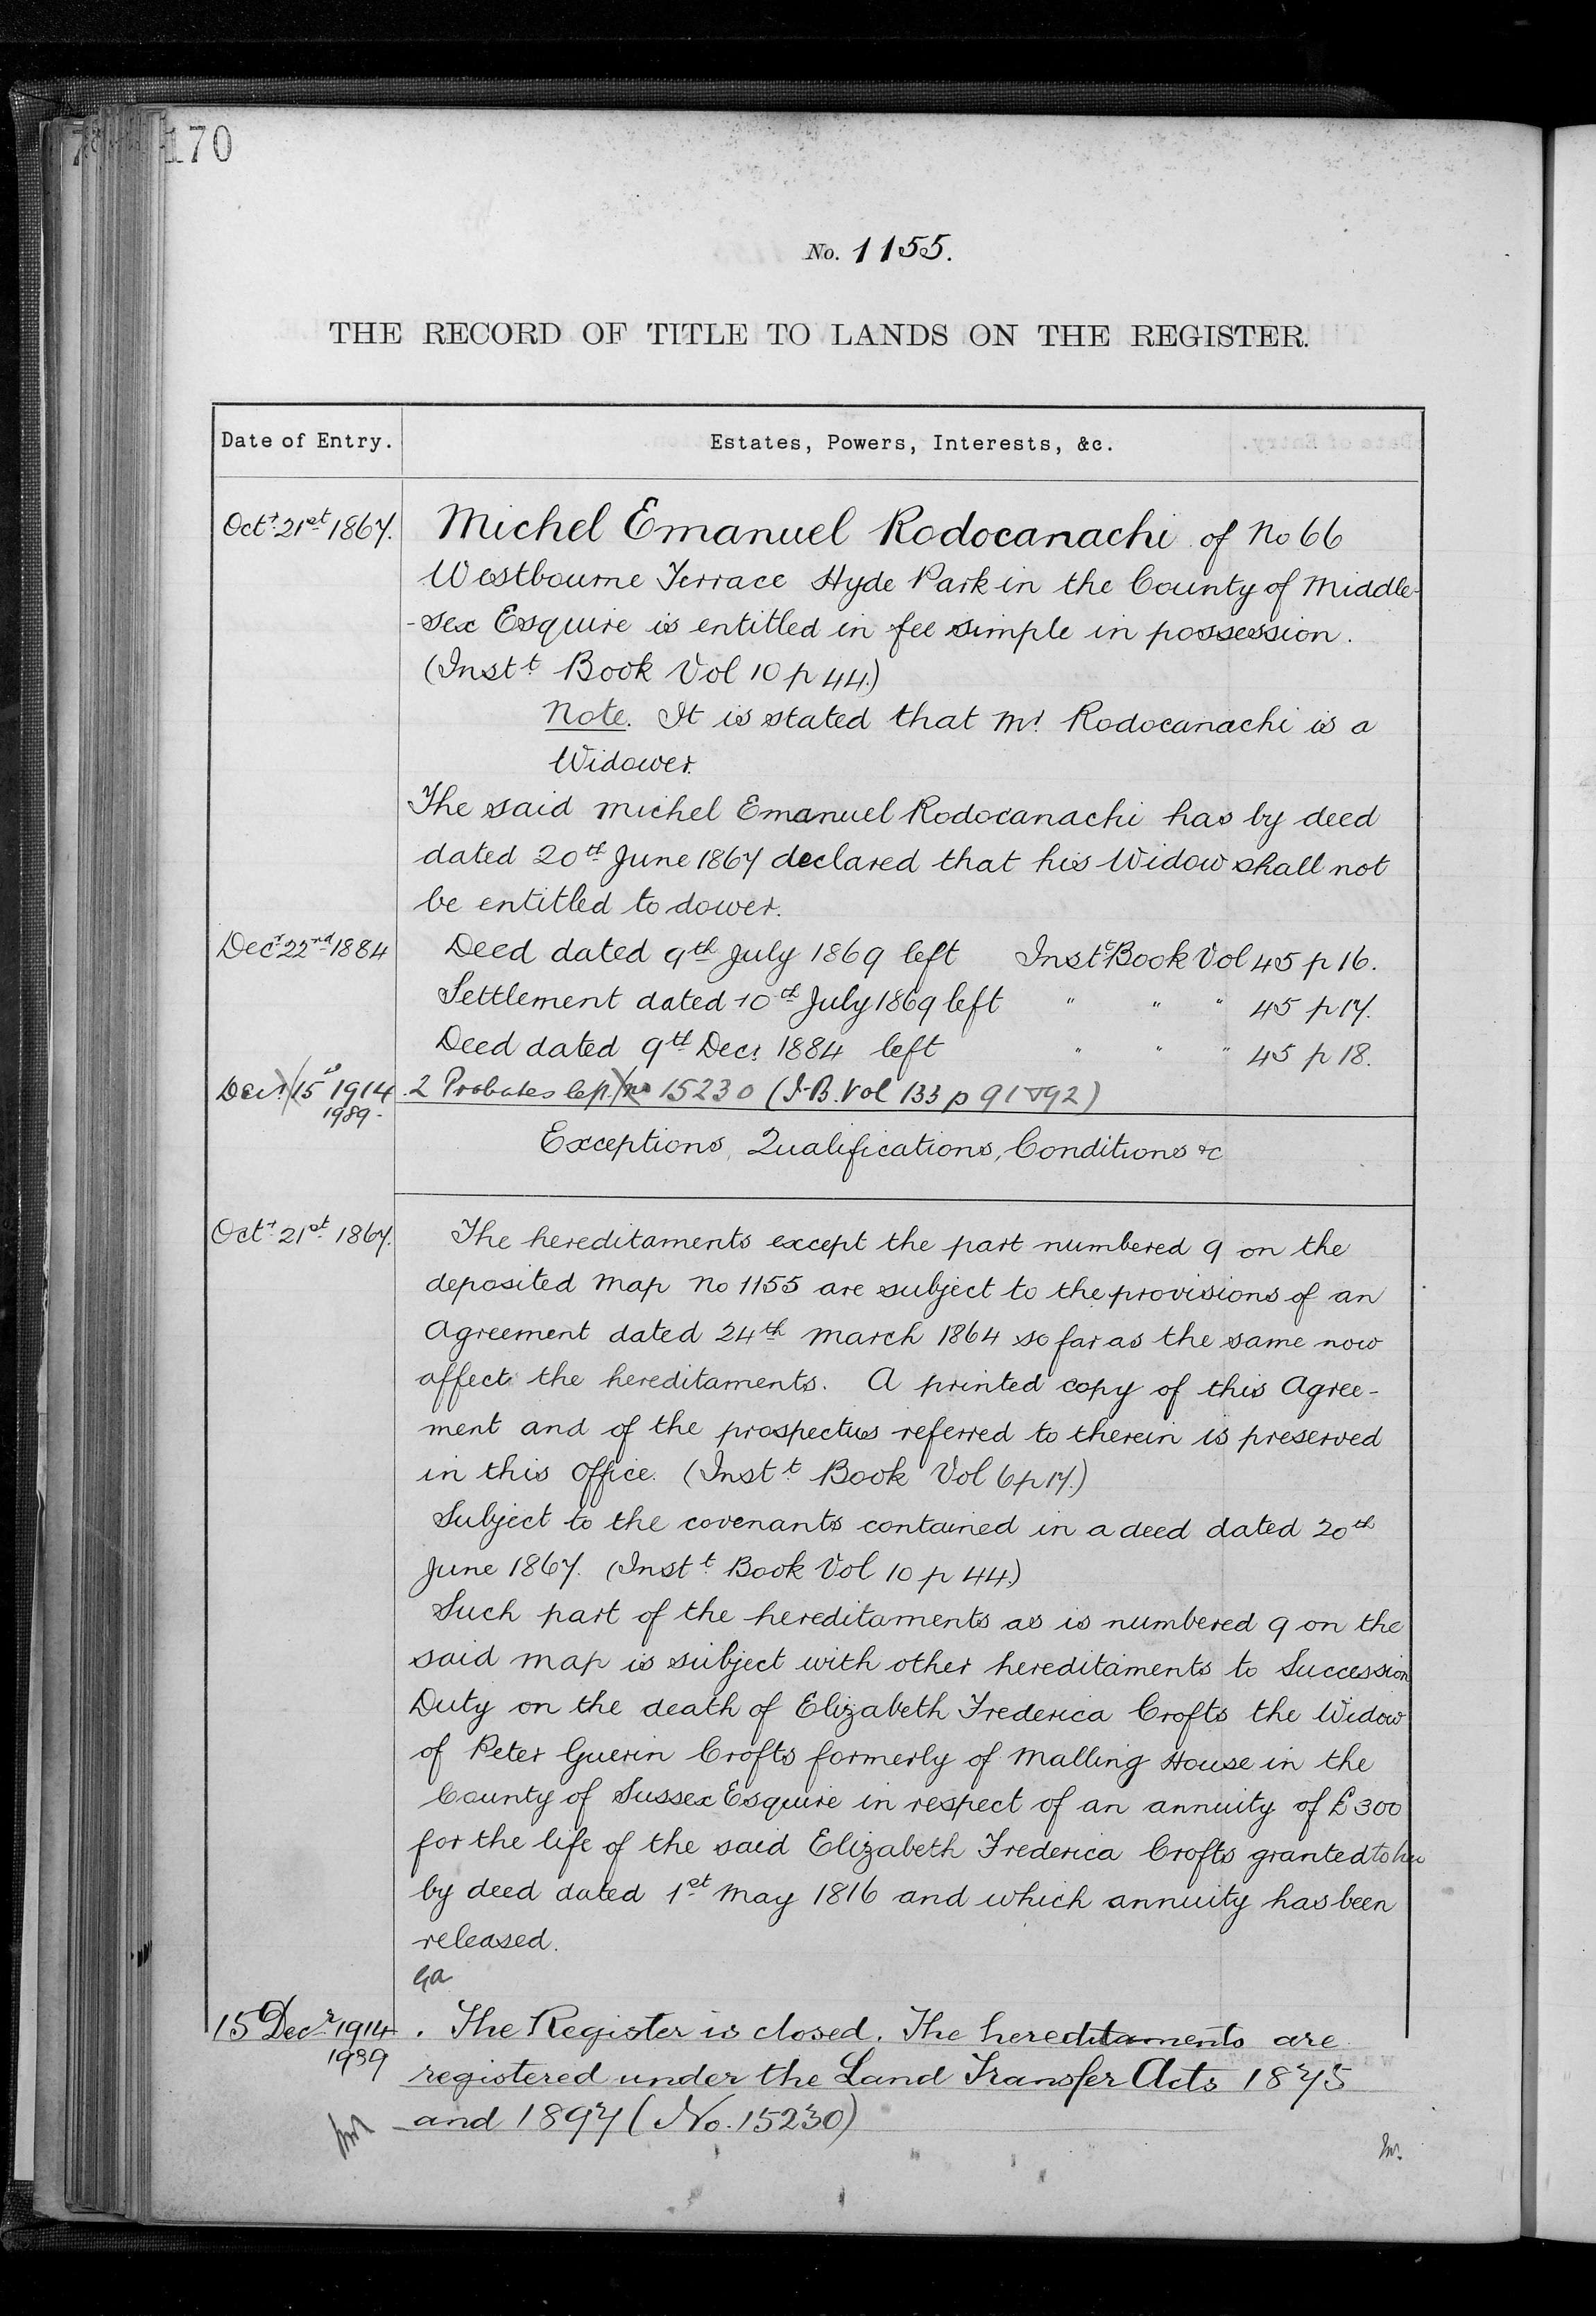 170
No. 1155.
THE RECORD OF TITLE TO LANDS ON THE REGISTER.
Date of Entry. Estates, Powers, Interests, &c.
Octr. 21st 1867. Michel Emanuel Rodocanachi of No 66
Westbourne Terrace Hyde Park in the County of Middle-
-sex Esquire is entitled in fee simple in possession.
(Instt. Book Vol 10 p 44.)
Note. It is stated that Mr. Rodocanachi is a
Widower.
The said Michel Emanuel Rodocanachi has by deed
dated 20th June 1867 declared that his Widow shall not
be entitled to dower.
Decr. 22nd 1884 Deed dated 9th July 1869 left Instt. Book Vol 45 p 16.
Settlement dated 10th July 1869 left " " " 45 p 17.
Deed dated 9th Decr. 1884 left " " " 45 p 18.
Decr. 15 1914 2 Probates left. no 15230 (I.B. Vol 133 p 91 & 92)
1989.
Exceptions, Qualifications, Conditions &c
Octr. 21st. 1867. The hereditaments except the part numbered 9 on the
deposited Map No 1155 are subject to the provisions of an
Agreement dated 24th March 1864 so far as the same now
affect the hereditaments. A printed copy of this Agree-
ment and of the prospectus referred to therein is preserved
in this Office. (Instt. Book Vol 6 p 17.)
Subject to the covenants contained in a deed dated 20th
June 1867. (Instt. Book Vol 10 p 44.)
Such part of the hereditaments as is numbered 9 on the
said map is subject with other hereditaments to Succession
Duty on the death of Elizabeth Frederica Crofts the Widow
of Peter Guerin Crofts formerly of Malling House in the
County of Sussex Esquire in respect of an annuity of £300
for the life of the said Elizabeth Frederica Crofts granted to her
by deed dated 1st May 1816 and which annuity has been
released.
15 Decr. 1914. The Register is closed. The hereditaments are
1989 registered under the Land Transfer Acts 1875
and 1897 (No. 15230)